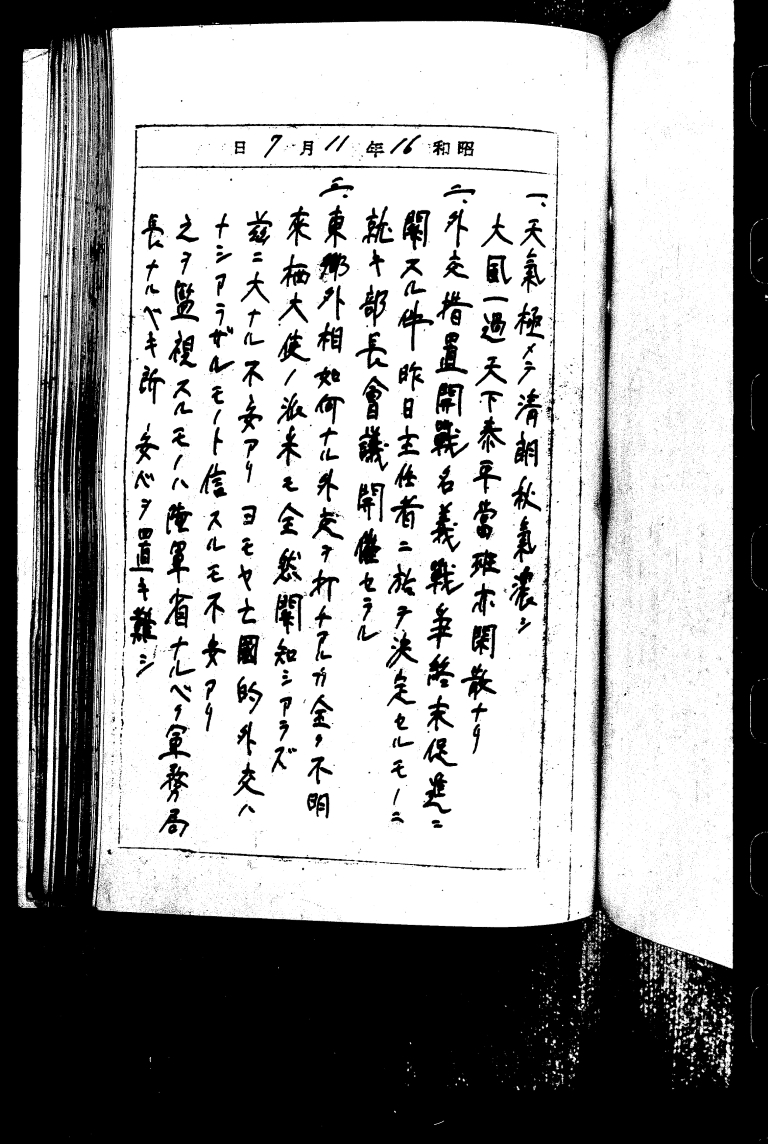 昭和16年11月7日
一、天氣極メテ清朗秋氣濃シ
大風一過天下泰平當班亦閑散ナリ
二、外交措置開戰名義戰爭終末促進ニ
關スル件昨日主任者ニ於テ決定セルモノニ
就キ部長會議開催セラル
三、東郷外相如何ナル外交ヲ打チアルカ全ク不明
來栖大使ノ派米モ全然關知シアラズ
茲ニ大ナル不安アリ ヨモヤ亡國的外交ハ
ナシアラザルモノト信スルモ不安アリ
之ヲ監視スルモノハ陸軍省ナルベク軍務局
長ナルベキ所 安心ヲ置キ難シ